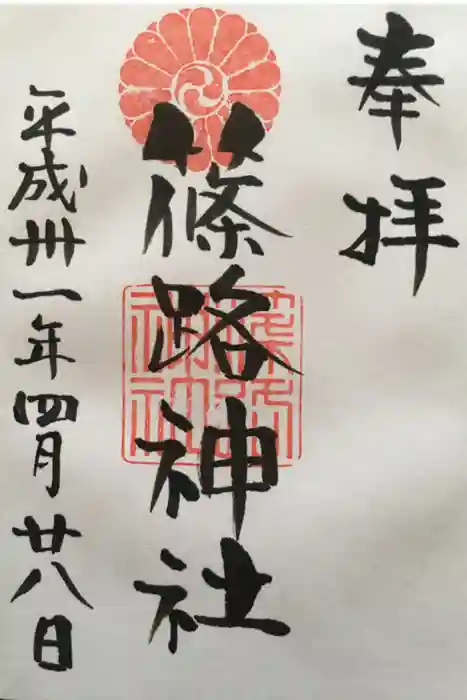 奉拝
篠路神社
平成卅一年四月廿八日